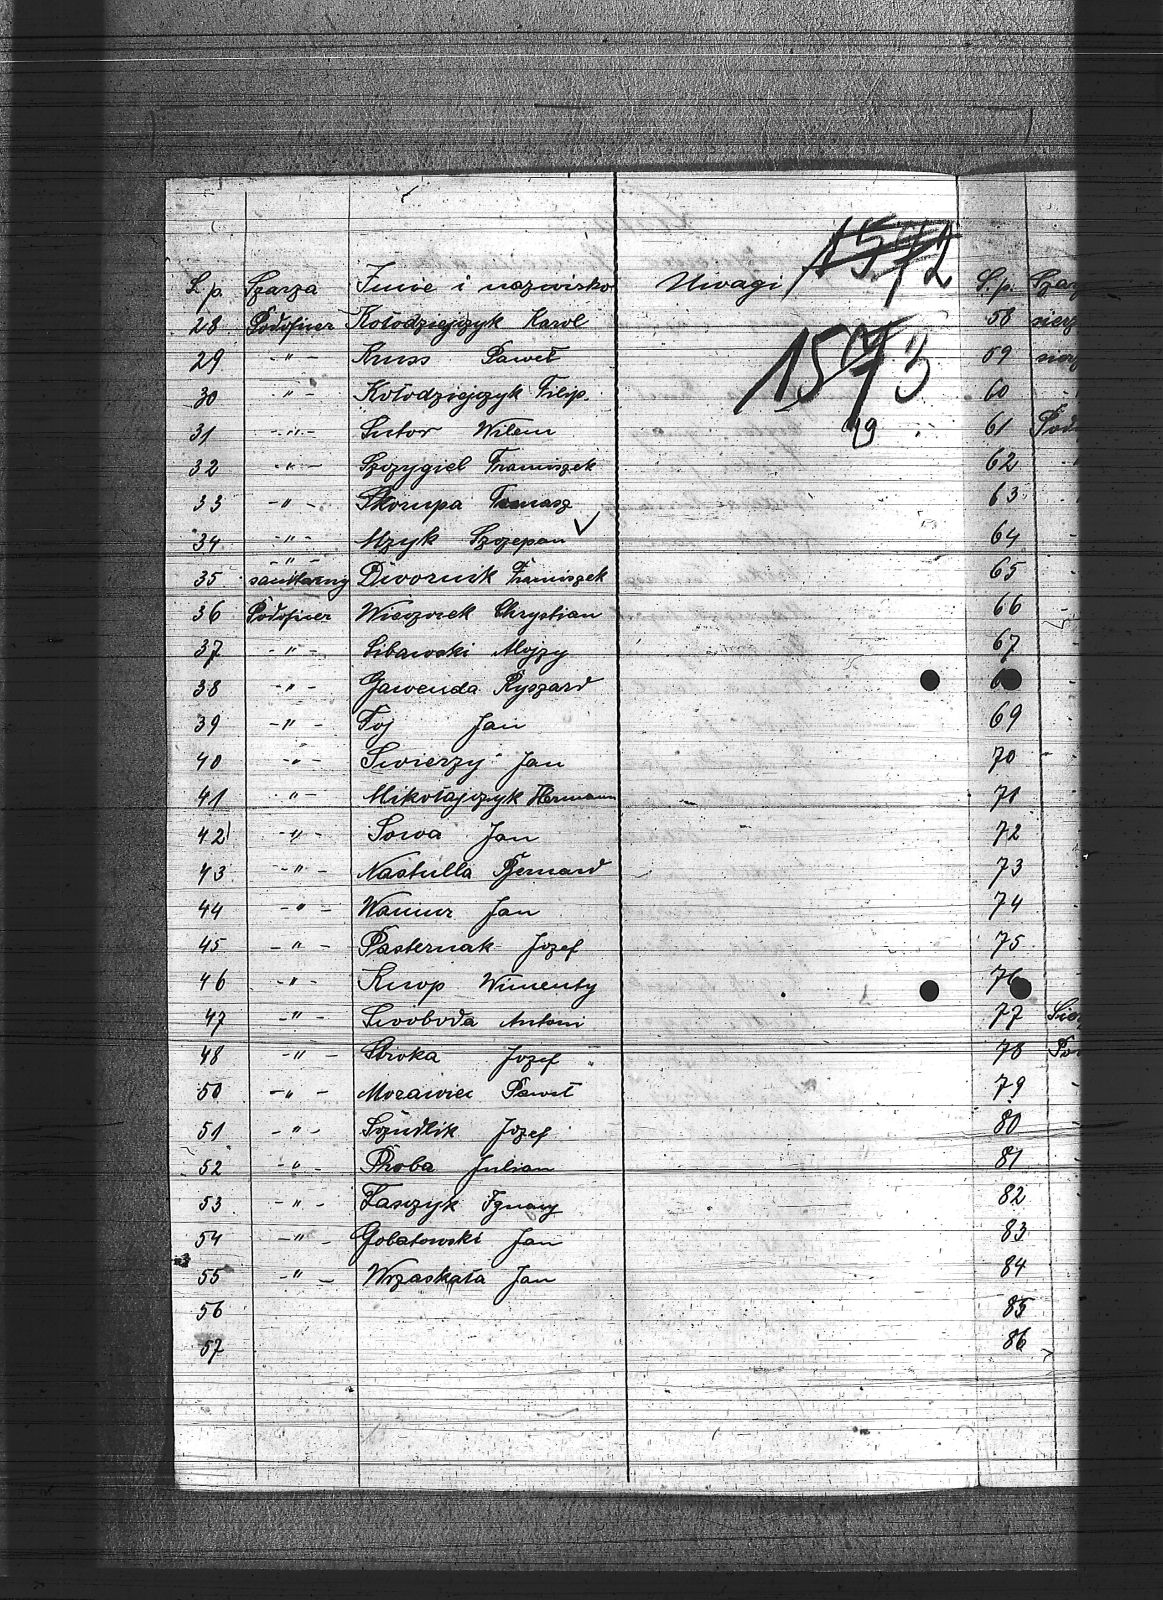 1572
L.p. Szarza Imie i nazwisko Uwagi
1573
19
28 Podoficer Kołodziejczyk Karol
29 -"- Kuss Paweł
30 -"- Kołodziejczyk Filip.
31 -"- Sutor Wilem
32 -"- Szczygiel Franciszek
33 -"- Skorupa Tomasz
34 -"- Mzyk Szczepan
35 sanitarny Dwornik Franciszek
36 Podoficer Wieczorek Chrystian
37 -"- Sibawski Alojzy
38 -"- Gawenda Ryszard
39 -"- Foj Jan
40 -"- Swierzy Jan
41 -"- Mikołajczyk Hermann
42 -"- Sowa Jan
43 -"- Nastulla Bernard
44 -"- Jan
45 -"- Pasternak Jozef
46 -"- Knop Wincenty
47 -"- Swoboda Antoni
48 -"- Jozef
50 -"- Morawiec Paweł
51 -"- Szudlik Jozef
52 -"- Proba Julian
53 -"- Ignacy
54 -"- Gobatowski Jan
55 -"- Wrzaskała Jan
56
57
L.p. Szar
58 sierz
59
60
61 Podo
62
63
64
65
66
67
69
70
71
72
73
74
75
76
77 Sier
78 Pod
79
80
81
82
83
84
85
86